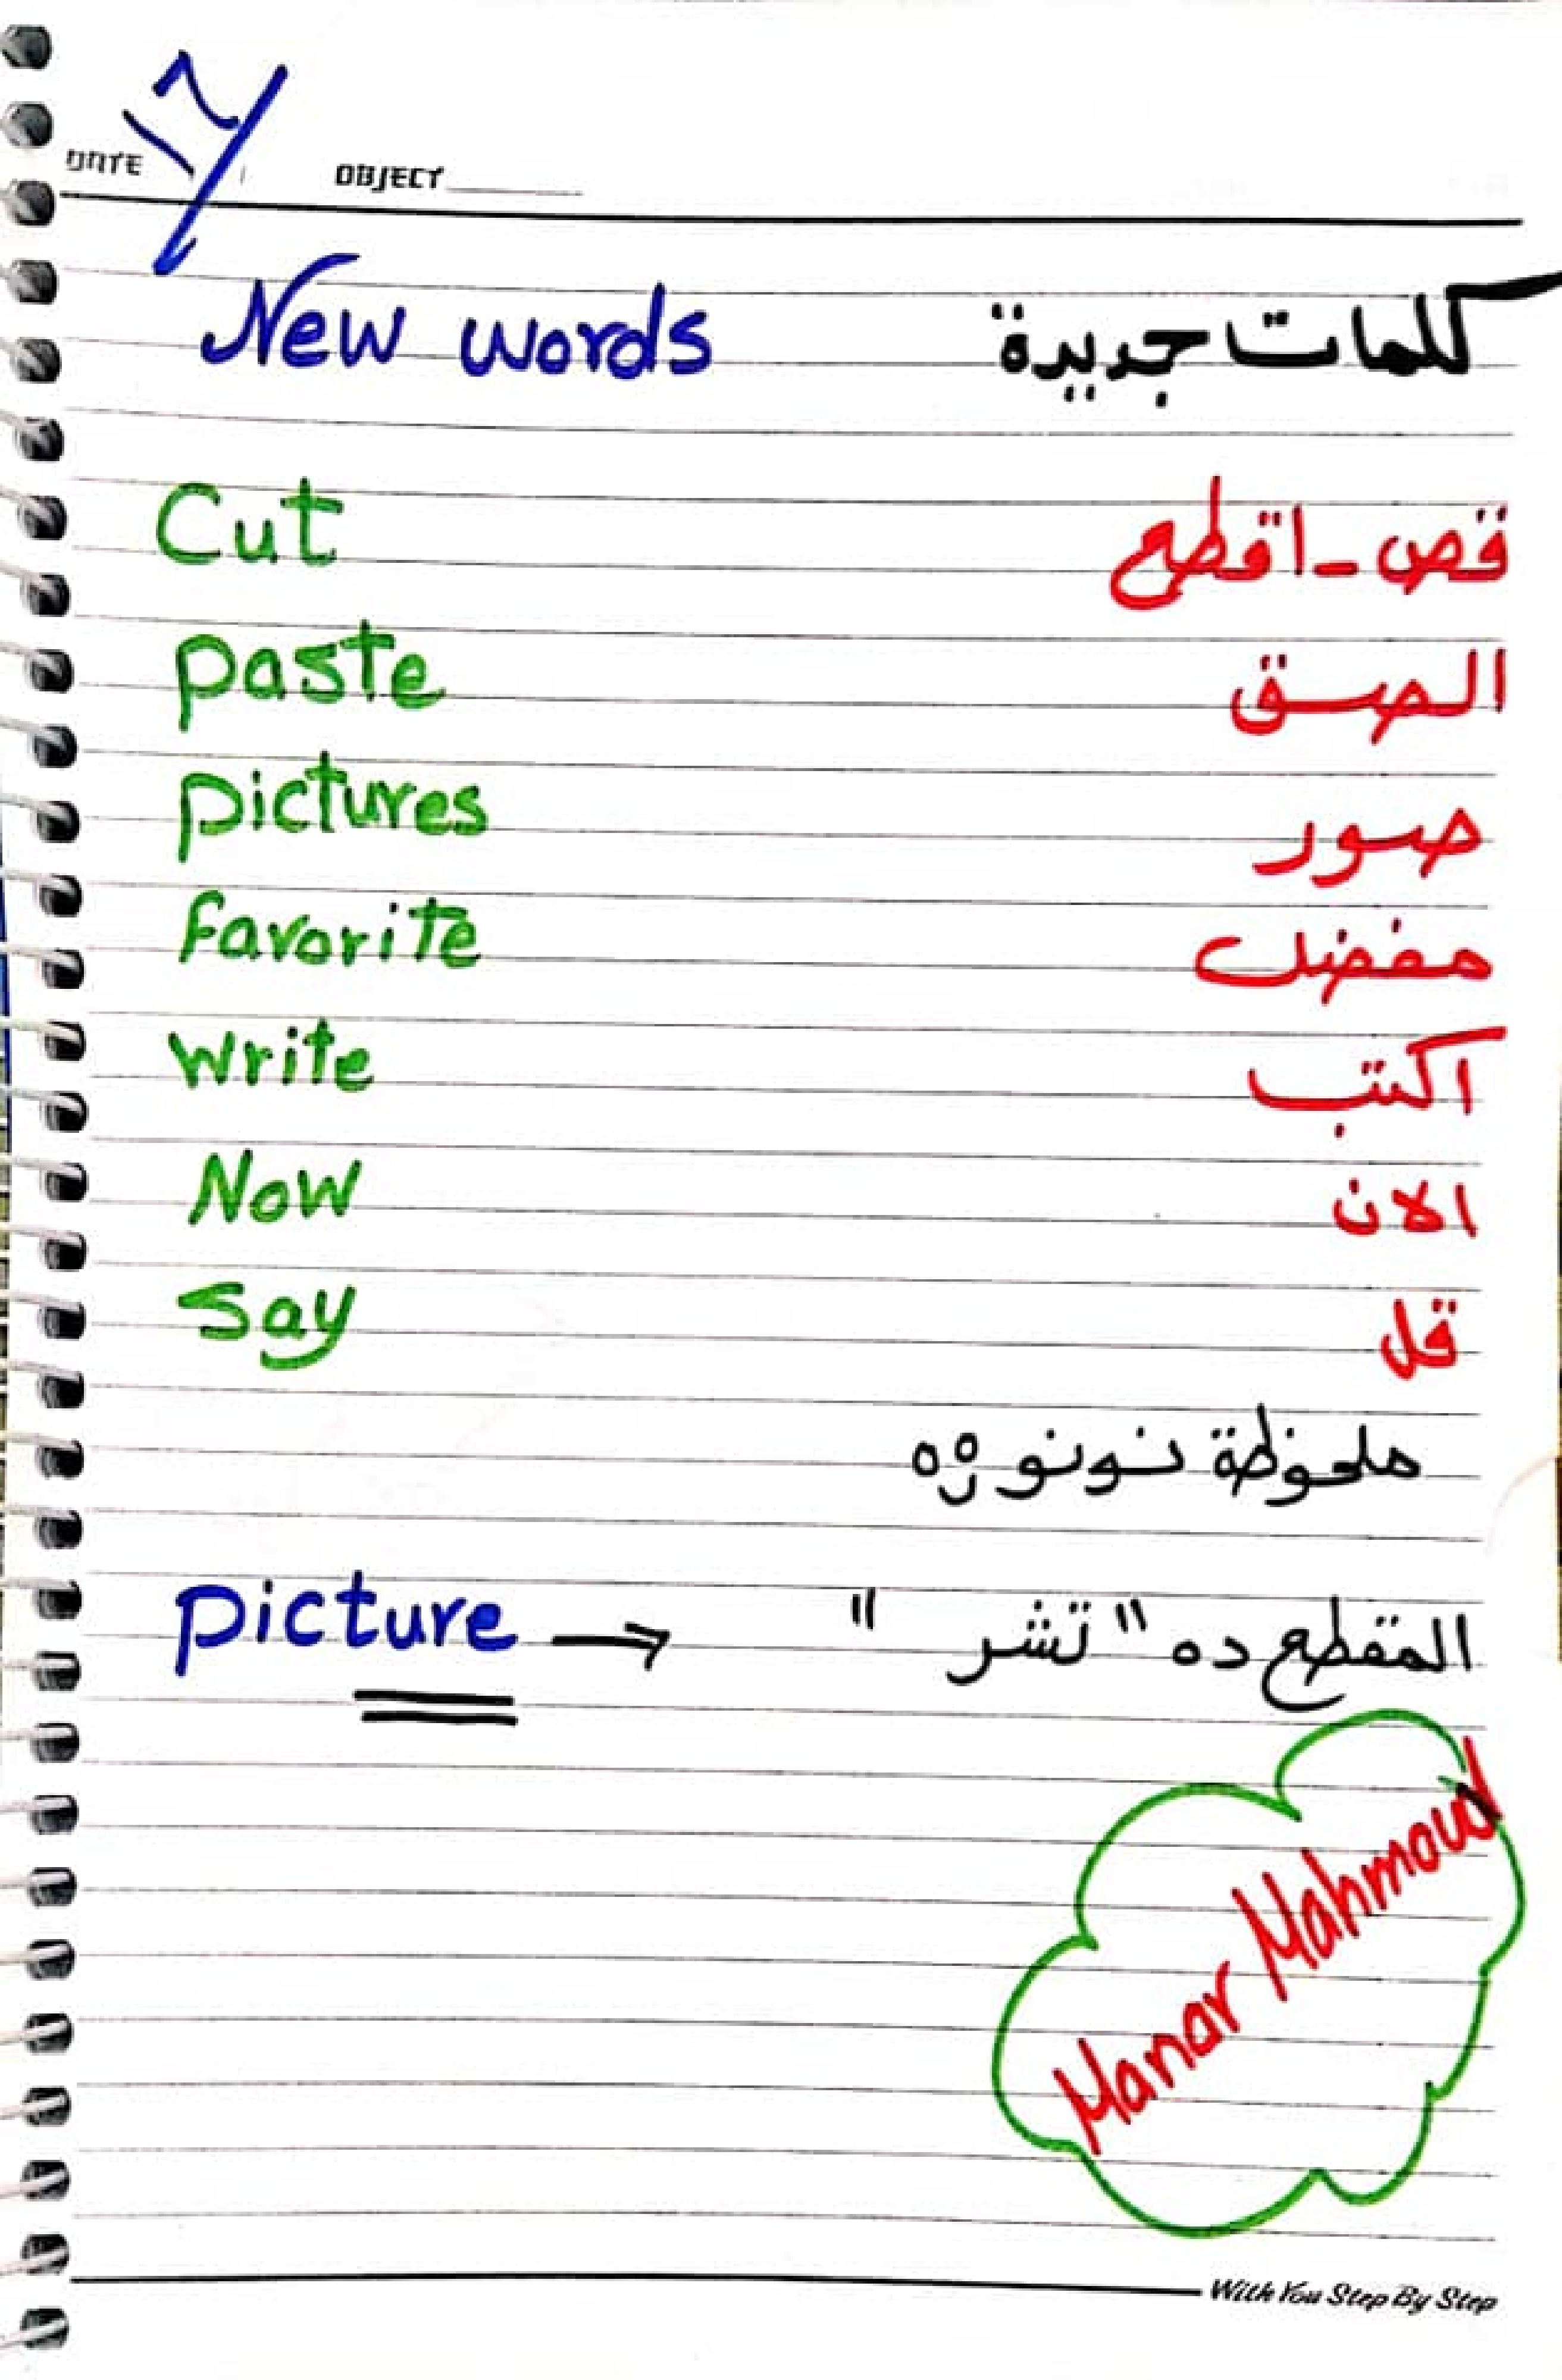 ١٦/
DATE OBJECT
New words كلمات جديدة
Cut قص - اقطع
paste الصق
pictures صور
favorite مفضل
write اكتب
Now الان
say قل
ملحوظة نونو
picture → المقطع ده "تشر"
Manar Mahmoud
With You Step By Step